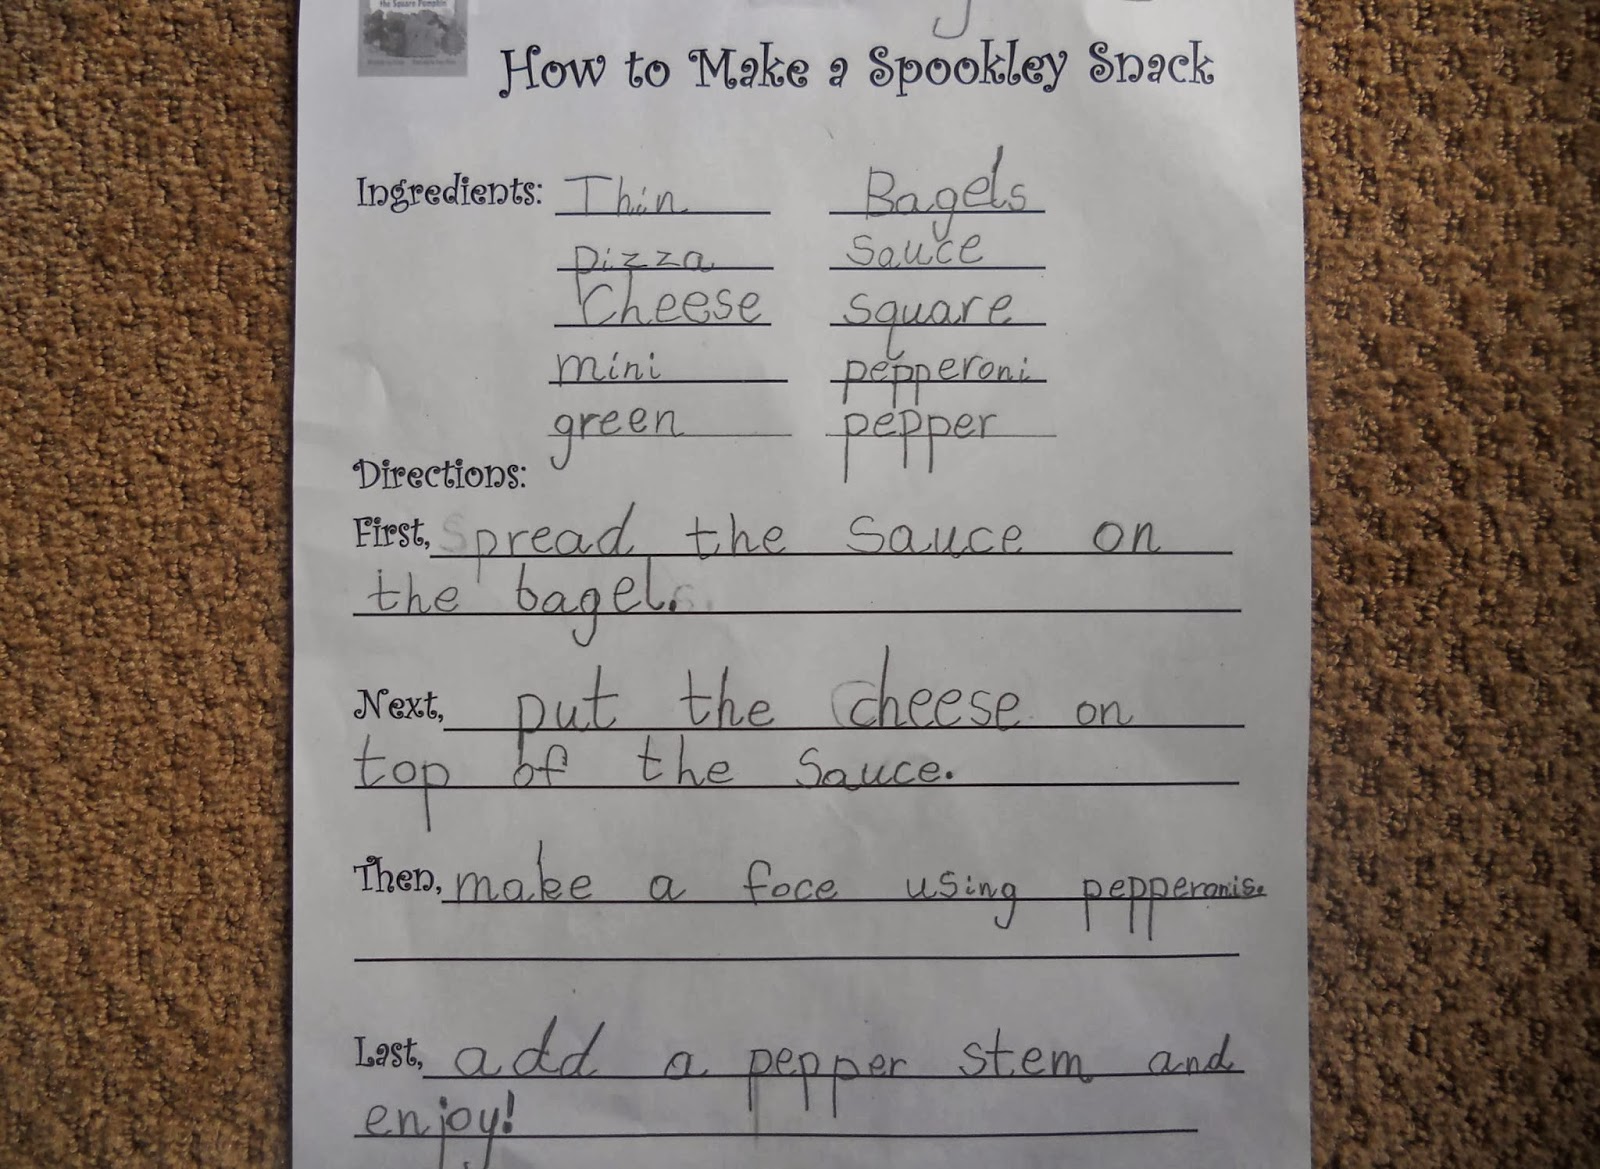 the Square Pumpkin
How to Make a Spookley Snack
Ingredients: Thin Bagels
pizza sauce
Cheese square
mini pepperoni
green pepper
Directions:
First, spread the sauce on
the bagel.
Next, put the cheese on
top of the sauce.
Then, make a face using pepperonis.
Last, add a pepper stem and
enjoy!